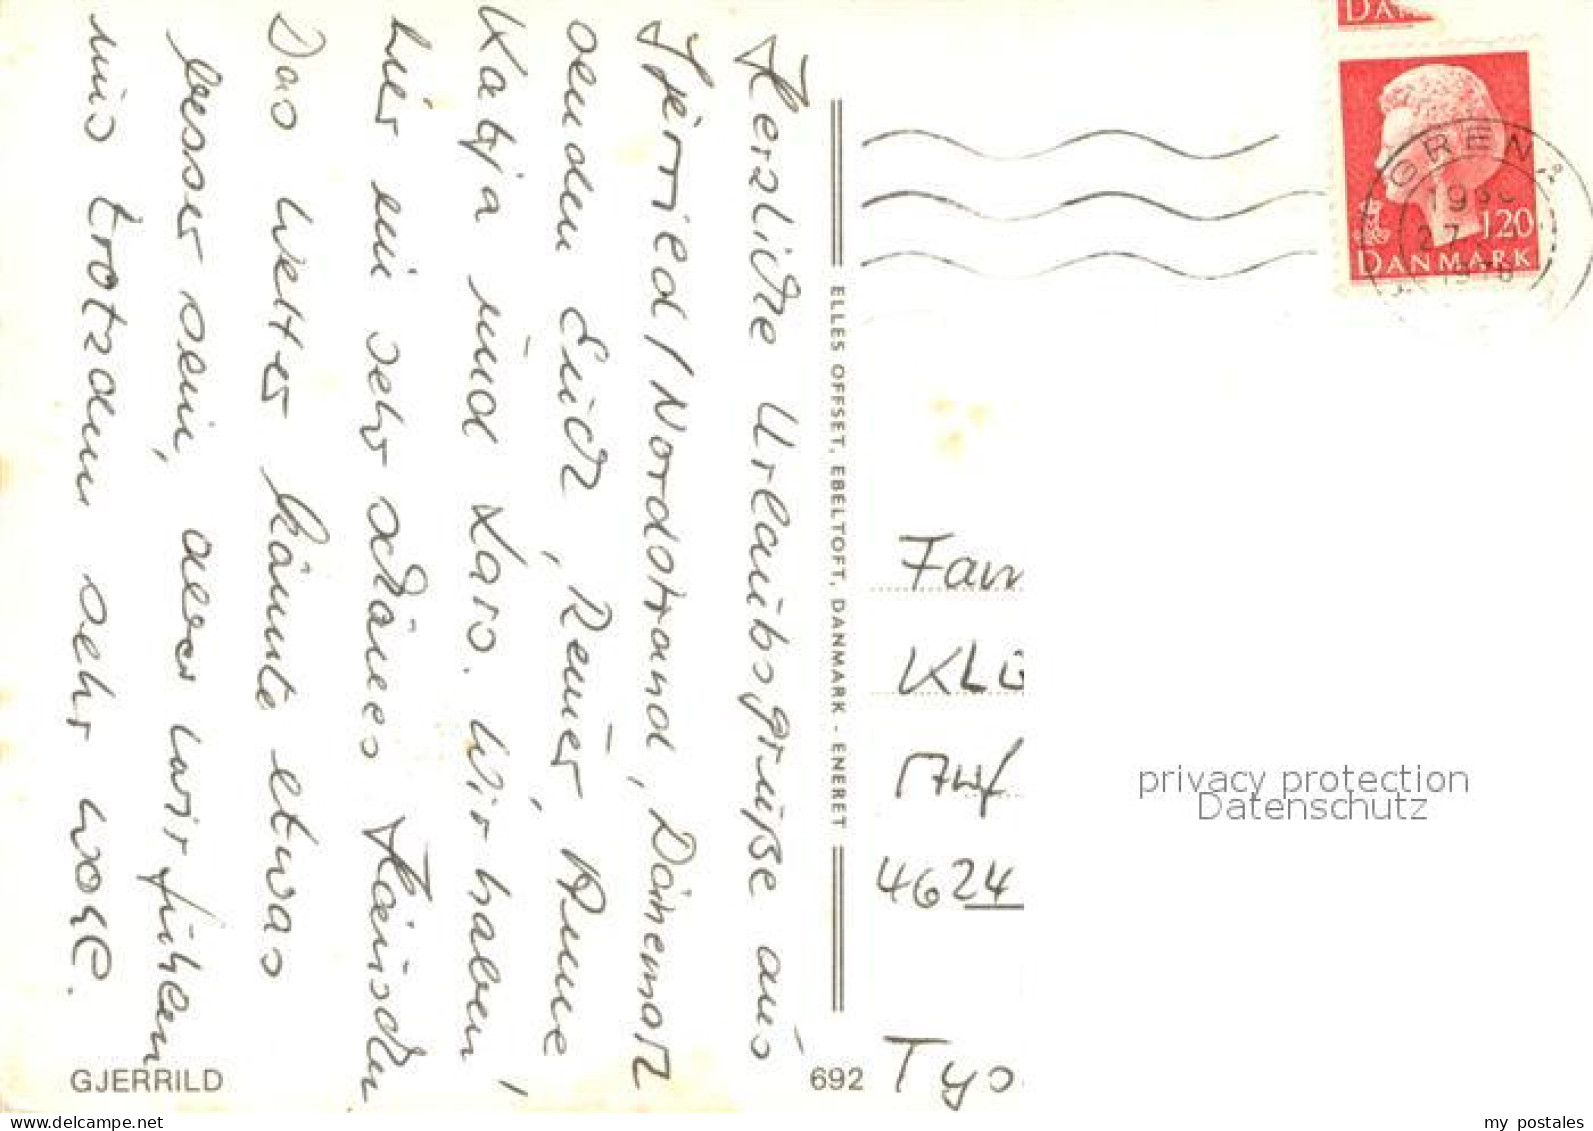 Herzliche Urlaubsgrüße aus
Gjerrild/Nordstrand, Dänemark
senden Euch, Reiner, Anne
Katja und Lars. Wir haben
hier ein sehr schönes Häuschen
Das Wetter könnte etwas
besser sein, aber wir fühlen
uns trotzdem sehr wohl.
GJERRILD
ELLES OFFSET, EBELTOFT, DANMARK - ENERET
692
DANMARK
120
GRENÅ
Fam
Auf
4624
Tys
privacy protection
Datenschutz
my postales